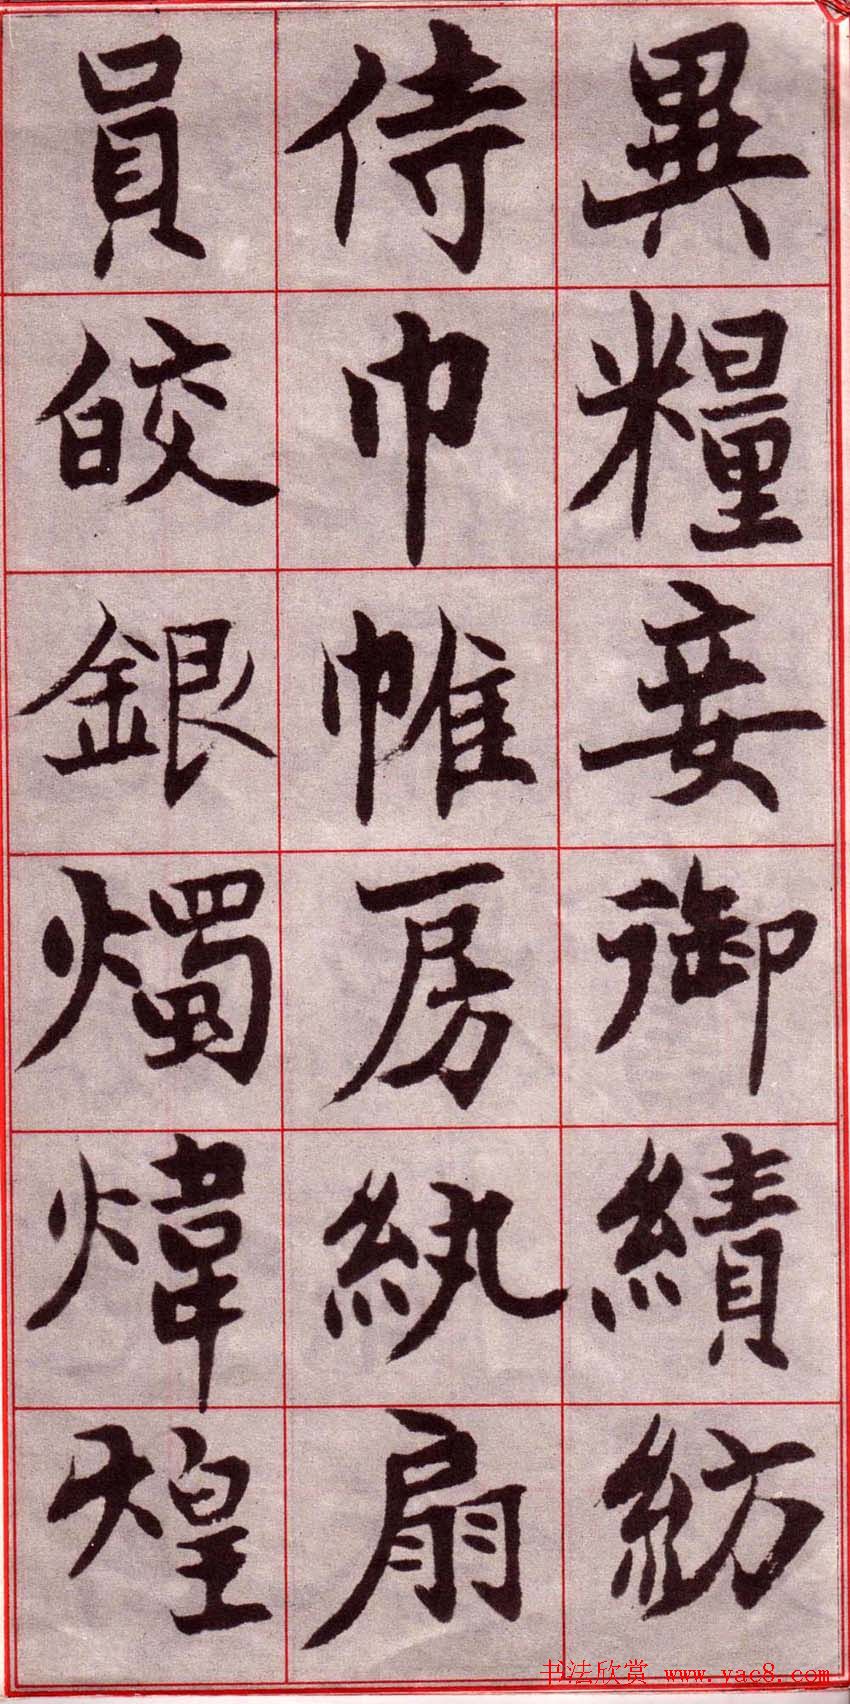 異糧妾御績紡
侍巾帷房紈扇
員皎銀燭煒煌
书法欣赏 www.yac8.com